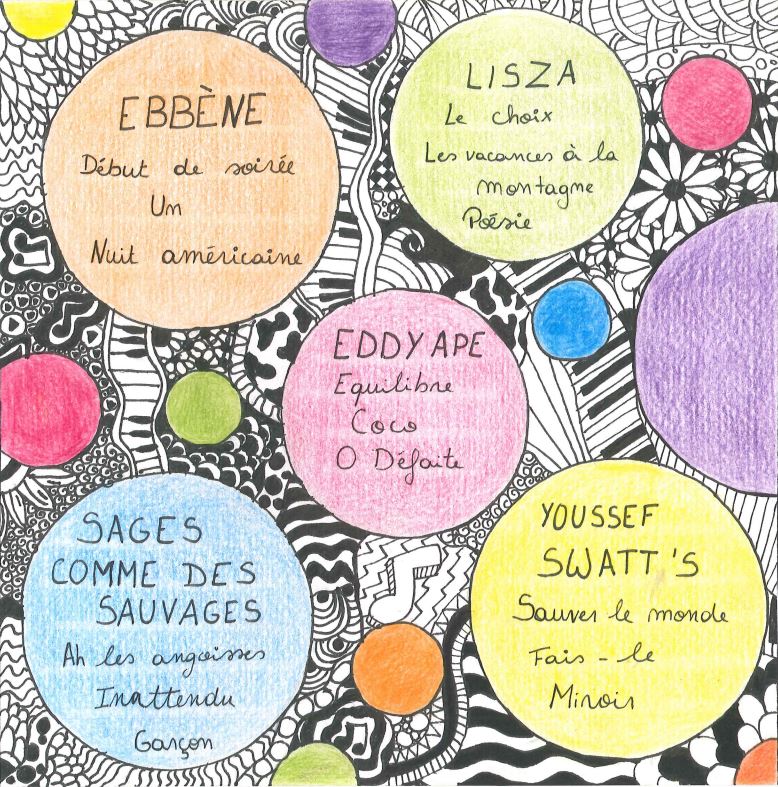 EBBÈNE
Début de soirée
Un
Nuit américaine
LISZA
Le choix
Les vacances à la
montagne
Poésie
EDDY APE
Equilibre
Coco
O Défaite
SAGES
COMME DES
SAUVAGES
Ah les angoisses
Inattendu
Garçon
YOUSSEF
SWATT'S
Sauver le monde
Fais-le
Miroir